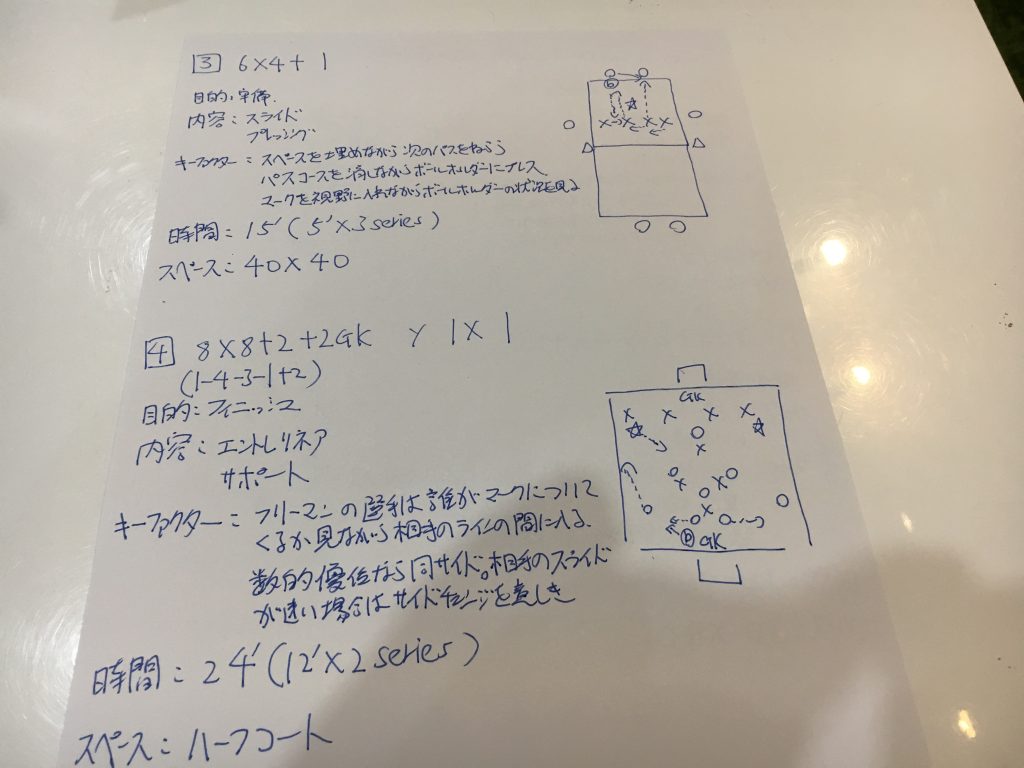 3 6×4+1
目的: 守備
内容: スライド
プレッシング
キーファクター: スペースを埋めながら次のパスをねらう
パスコースを消しながらボールホルダーにプレス
マークを視野に入れながらボールホルダーの状況を見る
時間: 15' (5'×3 series)
スペース: 40×40
4 8×8+2+2GK y 1×1
(1-4-3-1+2)
目的: フィニッシュ
内容: エントレリネア
サポート
キーファクター: フリーマンの選手は誰がマークについて
くるか見ながら相手のラインの間に入る.
数的優位なら同サイド。相手のスライド
が速い場合はサイドチェンジを意しき
時間: 24' (12'×2 series)
スペース: ハーフコート
GK
GK